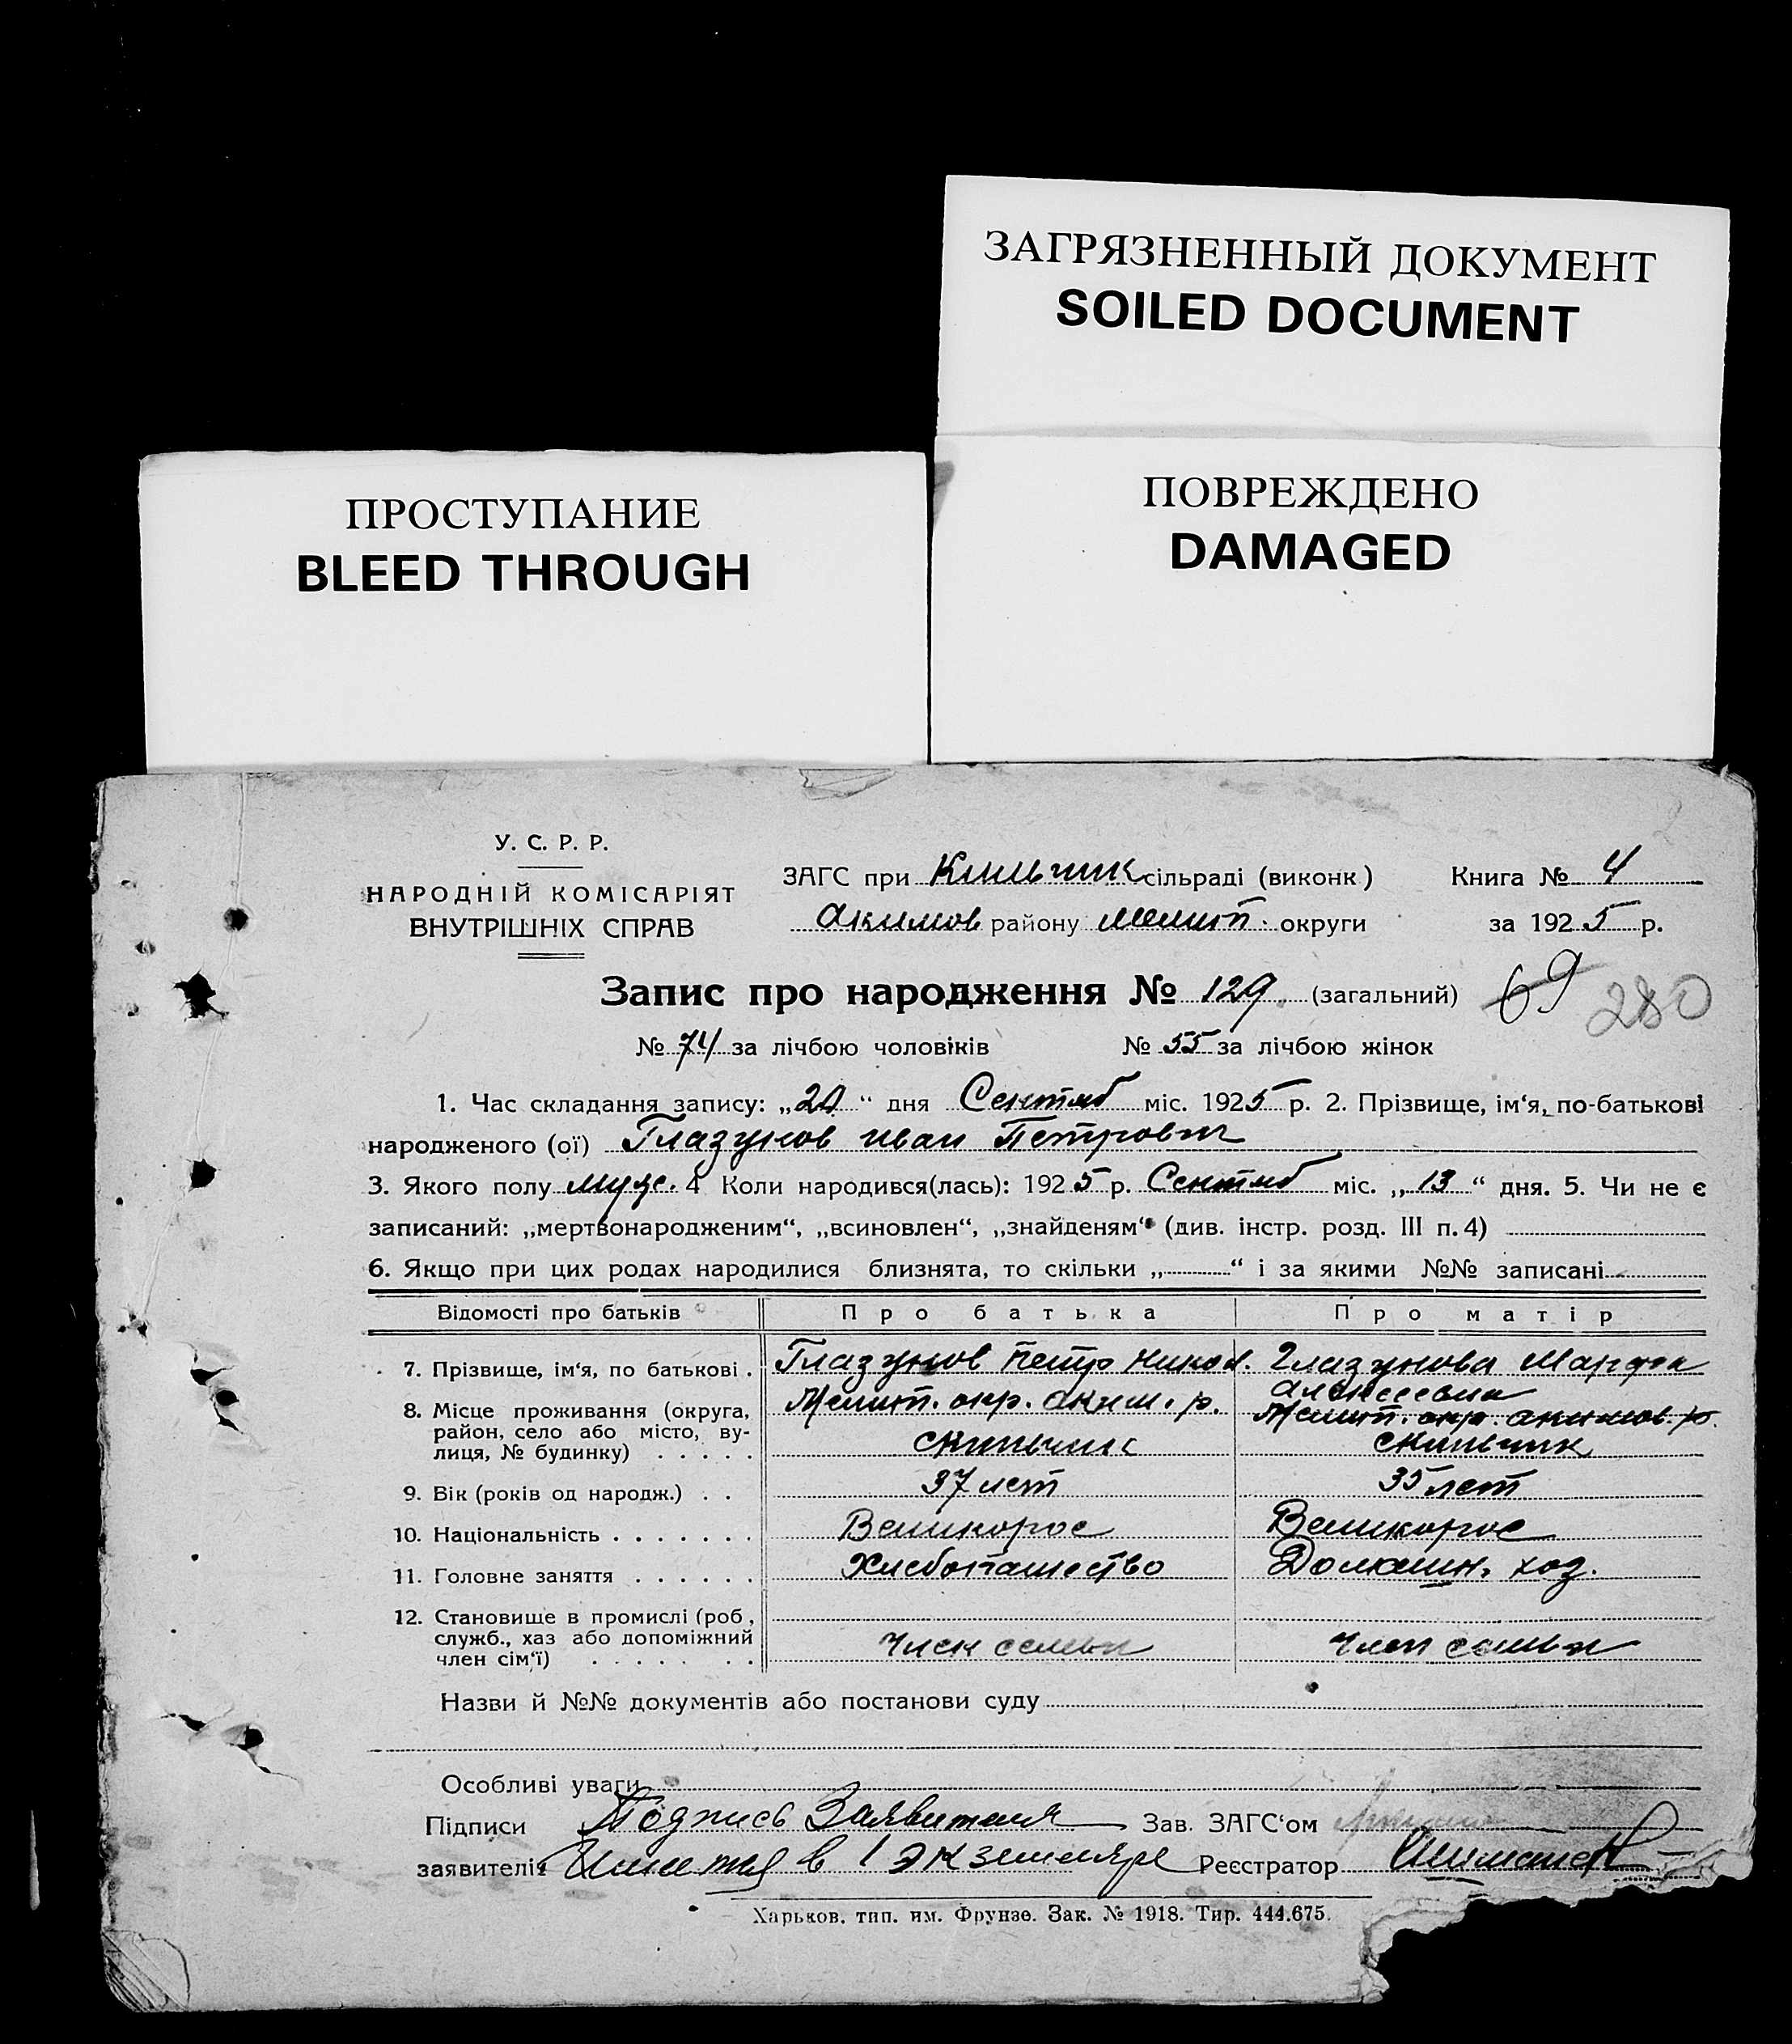 ЗАГРЯЗНЕННЫЙ ДОКУМЕНТ
SOILED DOCUMENT
ПРОСТУПАНИЕ
BLEED THROUGH
ПОВРЕЖДЕНО
DAMAGED
У. С. Р. Р.
НАРОДНІЙ КОМІСАРІЯТ
ВНУТРІШНІХ СПРАВ
ЗАГС при Кильчик сільраді (виконк) Книга № 4
Акимов району Мелит. округи за 1925 р.
Запис про народження № 129 (загальний) 69 280
№ 74 за лічбою чоловіків № 55 за лічбою жінок
1. Час складання запису: „20“ дня Сентяб міс. 1925 р. 2. Прізвище, ім‘я, по-батькові
народженого (ої) Глазунов Иван Петрович
3. Якого полу муж. 4 Коли народився(лась): 1925 р. Сентяб міс. „13“ дня. 5. Чи не є
записаний: „мертвонародженим“, „всиновлен“, „знайденям“ (див. інстр. розд. III п. 4)
6. Якщо при цих родах народилися близнята, то скільки „ “ і за якими №№ записані
Відомості про батьків Про батька Про матір
7. Прізвище, ім‘я, по батькові . Глазунов Петр Никол. Глазунова Марфа
Алексеевна
8. Місце проживання (округа, Мелит. окр. Аким. р. Мелит. окр. Акимов. р.
район, село або місто, ву-
лиця, № будинку) . . . . . с Кильчик с Кильчик
9. Вік (років од народж.) . . 37 лет 35 лет
10. Національність . . . . . . . Великорос Великорос
11. Головне заняття . . . . . . Хлебопашество Домашн. хоз.
12. Становище в промислі (роб,
служб., хаз або допоміжний
член сім‘ї) . . . . . . . Член семьи Член семьи
Назви й №№ документів або постанови суду
Особливі уваги
Підписи Подпись Заявителя Зав. ЗАГС‘ом
заявителів Имется в 1 экземпляре Реєстратор
Харьков. тип. им. Фрунзе. Зак. № 1918. Тир. 444.675.